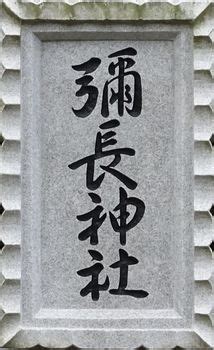 彌長神社